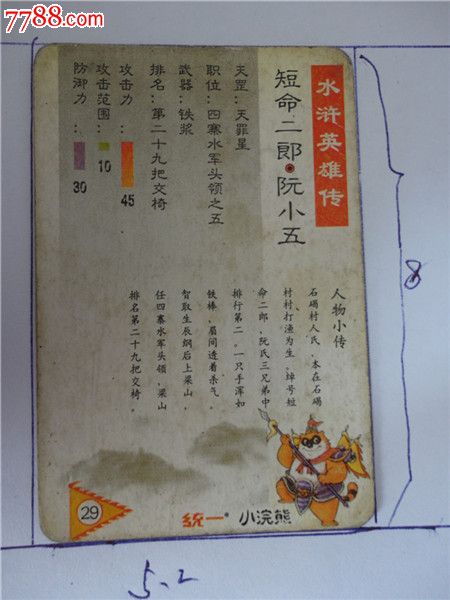 7788.com
水浒英雄传
短命二郎·阮小五
天罡：天罪星
职位：四寨水军头领之五
武器：铁浆
排名：第二十九把交椅
攻击力：
45
攻击范围：
10
防御力：
30
人物小传
石碣村人氏，本在石碣
村村打渔为生，绰号短
命二郎，阮氏三兄弟中
排行第二。一只手浑如
铁棒，眉间透着杀气。
智取生辰纲后上梁山，
任四寨水军头领，梁山
排名第二十九把交椅。
29
统一
小浣熊
8
5.2